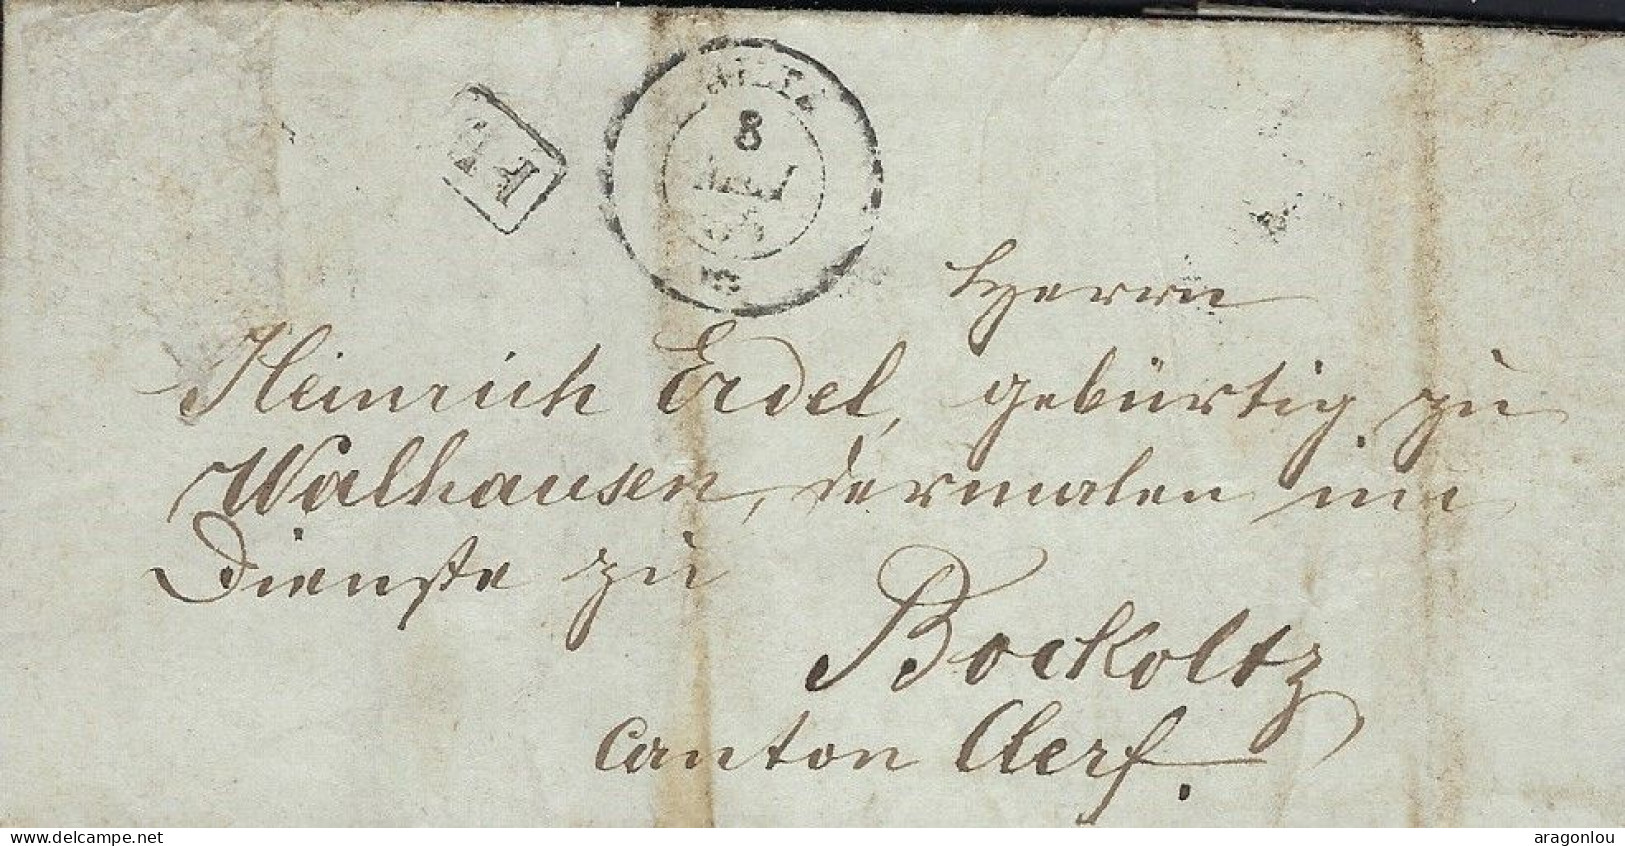 WILTZ
8
P.P.
Herrn
Heinrich Erdel, gebürtig zu
Walhausen, dermalen im
Dienste zu
Bockoltz
Canton Clerf.
delcampe.net
aragonlou